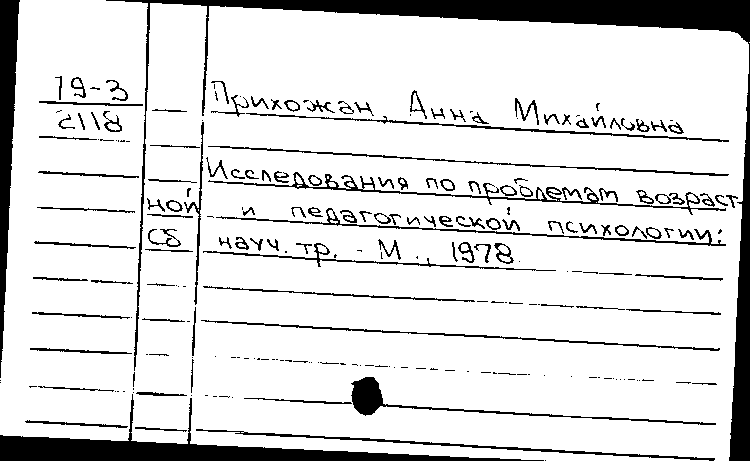 19-3
2118
Прихожан, Анна Михайловна
Исследования по проблемам возраст-
ной и педагогической психологии:
Сб науч. тр. - М., 1978.